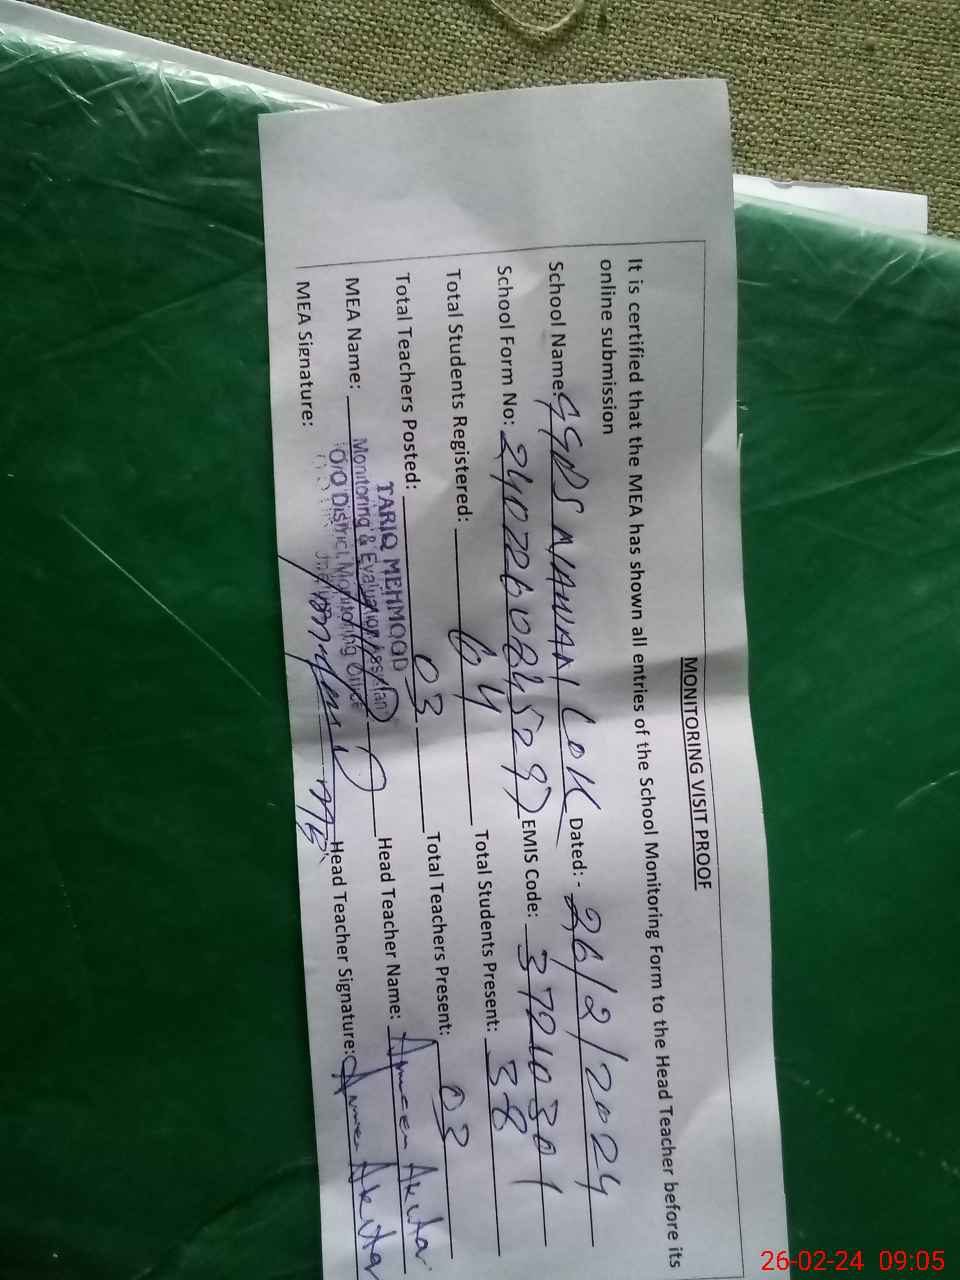 MONITORING VISIT PROOF
It is certified that the MEA has shown all entries of the School Monitoring Form to the Head Teacher before its
online submission
School Name: GGPS NAWAN LOK Dated: - 26/2/2024
School Form No: EMIS Code: 37210301
Total Students Registered: 64 Total Students Present: 38
Total Teachers Posted: 03 Total Teachers Present: 03
TARIQ MEHMOOD
MEA Name: Head Teacher Name: Ameen Akhtar
Monitoring & Evaluation Assistant
O/O District Monitoring Office
MEA Signature: Head Teacher Signature: Ameen Akhtar
26-02-24 09:05